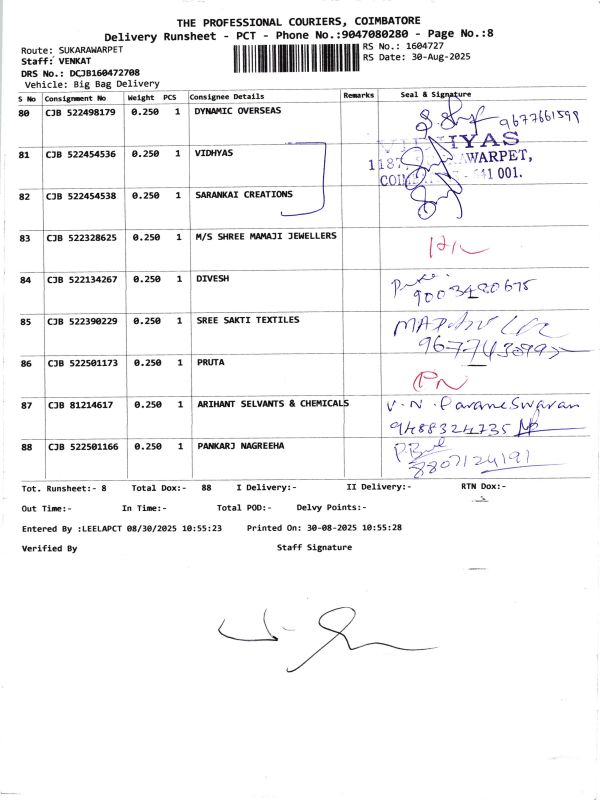 THE PROFESSIONAL COURIERS, COIMBATORE
Delivery Runsheet - PCT - Phone No.:9047080280 - Page No.:8
Route: SUKARAWARPET
RS No.: 1604727
Staff: VENKAT
RS Date: 30-Aug-2025
DRS No.: DCJB160472708
Vehicle: Big Bag Delivery
S No Consignment No Weight PCS Consignee Details Remarks Seal & Signature
80 CJB 522498179 0.250 1 DYNAMIC OVERSEAS 9677661599
81 CJB 522454536 0.250 1 VIDHYAS
YAS
WARPET,
641 001.
82 CJB 522454538 0.250 1 SARANKAI CREATIONS
83 CJB 522328625 0.250 1 M/S SHREE MAMAJI JEWELLERS
84 CJB 522134267 0.250 1 DIVESH
9003480675
85 CJB 522390229 0.250 1 SREE SAKTI TEXTILES
86 CJB 522501173 0.250 1 PRUTA PN
87 CJB 81214617 0.250 1 ARIHANT SELVANTS & CHEMICALS V.N. Parameswaran
9488324735
88 CJB 522501166 0.250 1 PANKARJ NAGREEHA
8807124191
Tot. Runsheet:- 8 Total Dox:- 88 I Delivery:- II Delivery:- RTN Dox:-
Out Time:- In Time:- Total POD:- Delvy Points:-
Entered By :LEELAPCT 08/30/2025 10:55:23 Printed On: 30-08-2025 10:55:28
Verified By Staff Signature